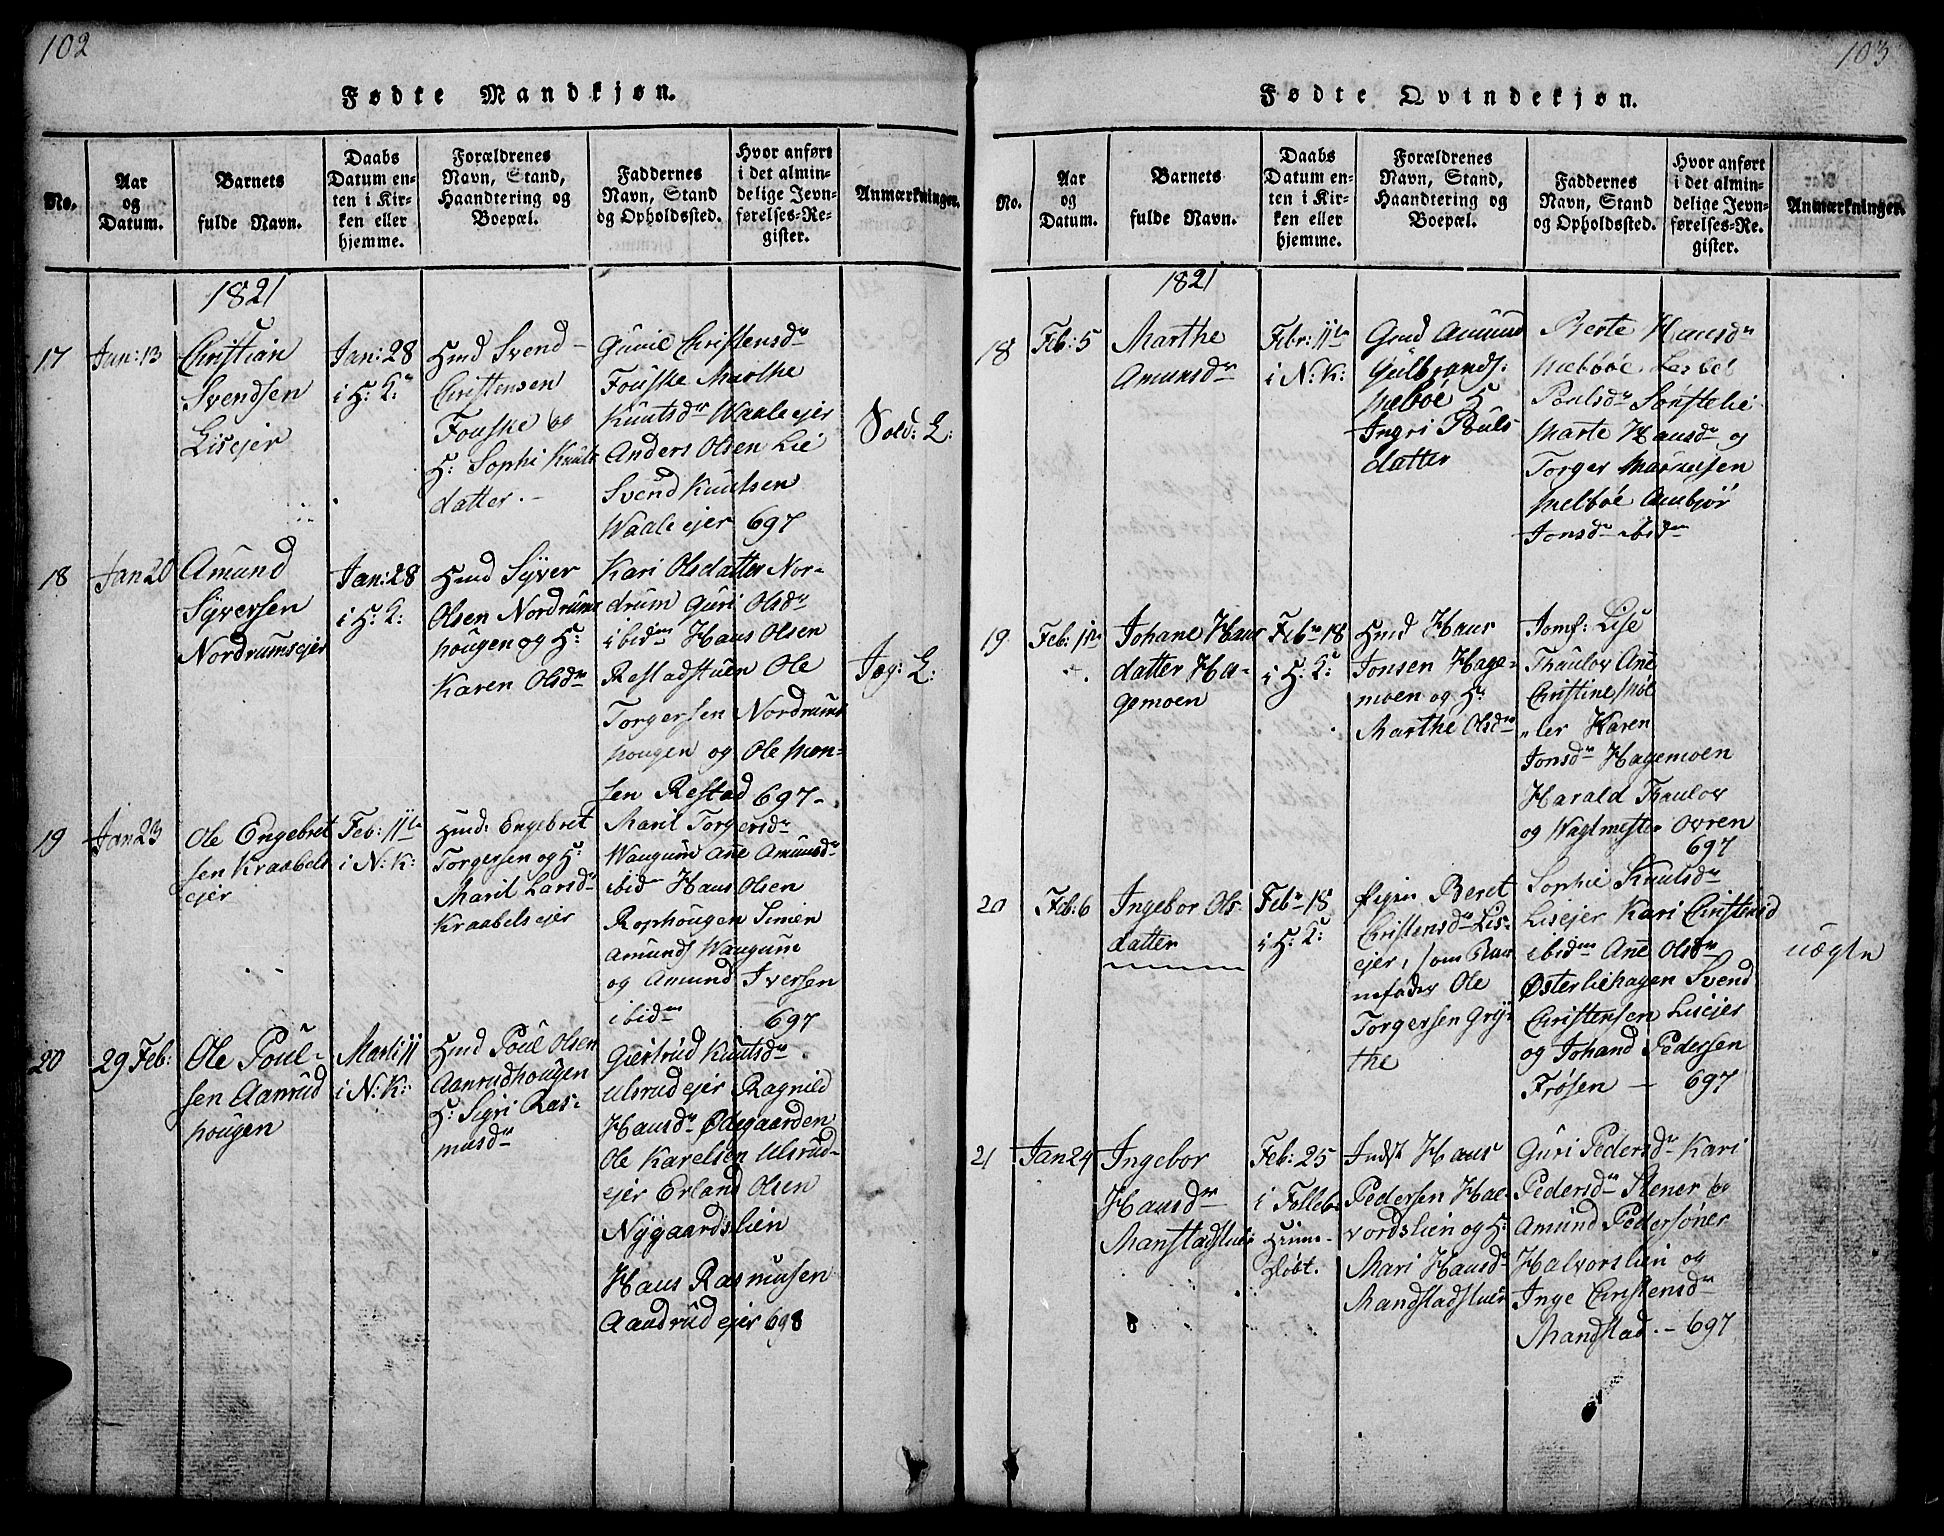 102
Fødte Mandkjøn.
No.
Aar
og
Datum.
Barnets
fulde Navn.
Daabs
Datum en-
ten i Kir-
ken eller
hjemme.
Forældrenes
Navn, Stand,
Haandtering og
Boepæl.
Faddernes
Navn, Stand
og Opholdssted.
Hvor anført
i det almin-
delige Jevn-
førelses-Re-
gister.
Anmærkninger.
1821
17
Jan: 13
Christian
Svendsen
Lisejer
Jan: 28
i H: K:
Hmd Svend
Christensen
Fouske og
H: Sophi Knuts
datter.
Gunil Christensdr
Fouske Marthe
Knutsdr Waaleejer
Anders Olsen Lie
Svend Knutsen
Waaleejer 697
Sold: L:
18
Jan 20
Amund
Syversen
Nordrumsejer
Jan: 28
i H: K:
Hmd Syver
Olsen Nordrums
hougen og H:
Karen Olsdr
Kari Olsdatter Nor-
drum Guri Olsdr
ibidm Hans Olsen
Restadstuen Ole
Torgersen Nordrums
hougen og Ole Mon-
sen Restad 697
Jæg: L:
19
Jan 23
Ole Engebret
sen Kraabels
ejer
Feb: 11te
i N: K:
Hmd: Engebret
Torgersen og H:
Marit Larsdr
Kraabelsejer
Marit Torgersdr
Waugum Ane Amundsdr
ibidm Hans Olsen
Rophougen Simen
Amunds Waugum
og Amund Iversen
ibidm 697
20
29 Feb:
Ole Poul-
sen Aanrud
hougen
Marti 11
i N: K:
Hmd Poul Olsen
Aanrudhougen
H: Sigri Ras-
musdr
Giertrud Knutsdr
Ulsrudejer Ragnild
Hansdr Ødegaarden
Ole Karelsen Ulsrud-
ejer Erland Olsen
Nygaardslien
Hans Rasmusen
Aandrudejer 698
103
Fødte Qvindekjøn.
No.
Aar
og
Datum.
Barnets
fulde Navn.
Daabs
Datum en-
ten i Kir-
ken eller
hjemme.
Forældrenes
Navn, Stand,
Haandtering og
Boepæl.
Faddernes
Navn, Stand
og Opholdssted.
Hvor anført
i det almin-
delige Jevn-
førelses-Re-
gister.
Anmærkninger.
1821
18
Feb: 5
Marthe
Amunsdr
Febr: 11te
i N: K:
Gmd Amund
Gulbrands:
Melbøe H
Ingri Pouls
datter
Berte Hansdr
Melbøe
Poulsdr Sønstelie
Marte Hansdr og
Torger
Melbøe Ambjør
Jonsdr ibidm
19
Feb:
Johane Hans
datter Ha-
gemoen
Febr 18
i H: K:
Hmd Hans
Jonsen Hage-
moen og H:
Marthe Olsdr
Jomf: Lise
Thaulov Ane
Christine Møl
ler Karen
Jonsdr Hagemoen
Harald Thaulov
og Wagtmester Ovren
697
20
Feb: 6
Ingebor Ols
datter
Febr 18
i H: K:
Pigen Beret
Christensdr Lis-
ejer, som Bar
nefader Ole
Torgersen Gry-
the
Sophie Knutsdr
Lisejer Kari Christensd
ibidm Ane Olsdr
Østerliehagen Svend
Christensen Lisejer
og Johand Pedersen
Frøsen — 697
uægte
21
Jan 24
Ingebor
Hansdr
Manstadstuen
Feb: 25
i Follebo
Hiem-
døbt.
Indst Hans
Pedersen Hal-
vordslien og H:
Mari Hansdr
Mandstadstuen
Guri Pedersdr Kari
Pedersdr Stener og
Amund Pedersøner
Halvorslien og
Inge Christensdr
Mandstad. — 697